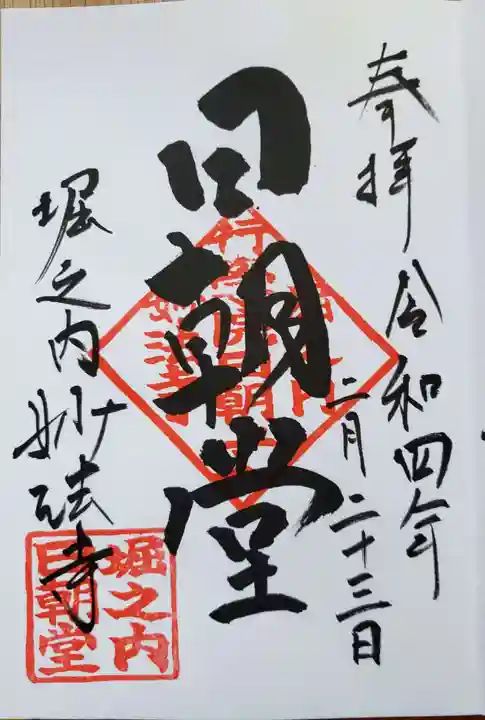 奉拝 令和四年
二月二十三日
日朝堂
堀之内妙法寺
堀之内
日朝堂